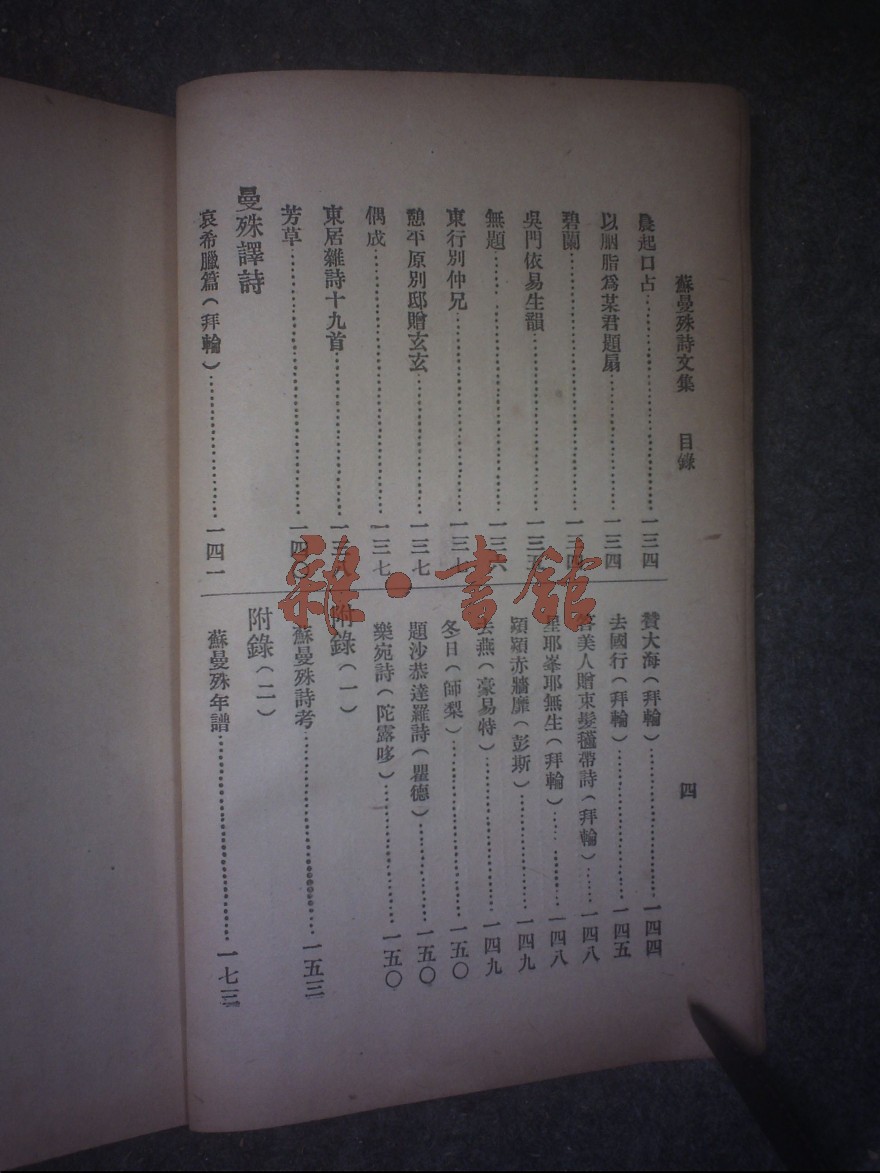 蘇曼殊詩文集　目錄　四
晨起口占……一三四
以胭脂爲某君題扇……一三四
碧蘭……一三四
吳門依易生韻……一三五
無題……一三六
東行別仲兄……一三七
憩平原別邸贈玄玄……一三七
偶成……一三七
東居雜詩十九首……一三八
芳草……一四〇
曼殊譯詩
哀希臘篇（拜輪）……一四一
贊大海（拜輪）……一四四
去國行（拜輪）……一四五
答美人贈束髮㲲帶詩（拜輪）……一四八
星耶峯耶無生（拜輪）……一四八
熲熲赤牆靡（彭斯）……一四九
去燕（豪易特）……一四九
冬日（師梨）……一五〇
題沙恭達羅詩（瞿德）……一五〇
樂宛詩（陀露哆）……一五〇
附錄（一）
蘇曼殊詩考……一五三
附錄（二）
蘇曼殊年譜……一七三
雜·書館